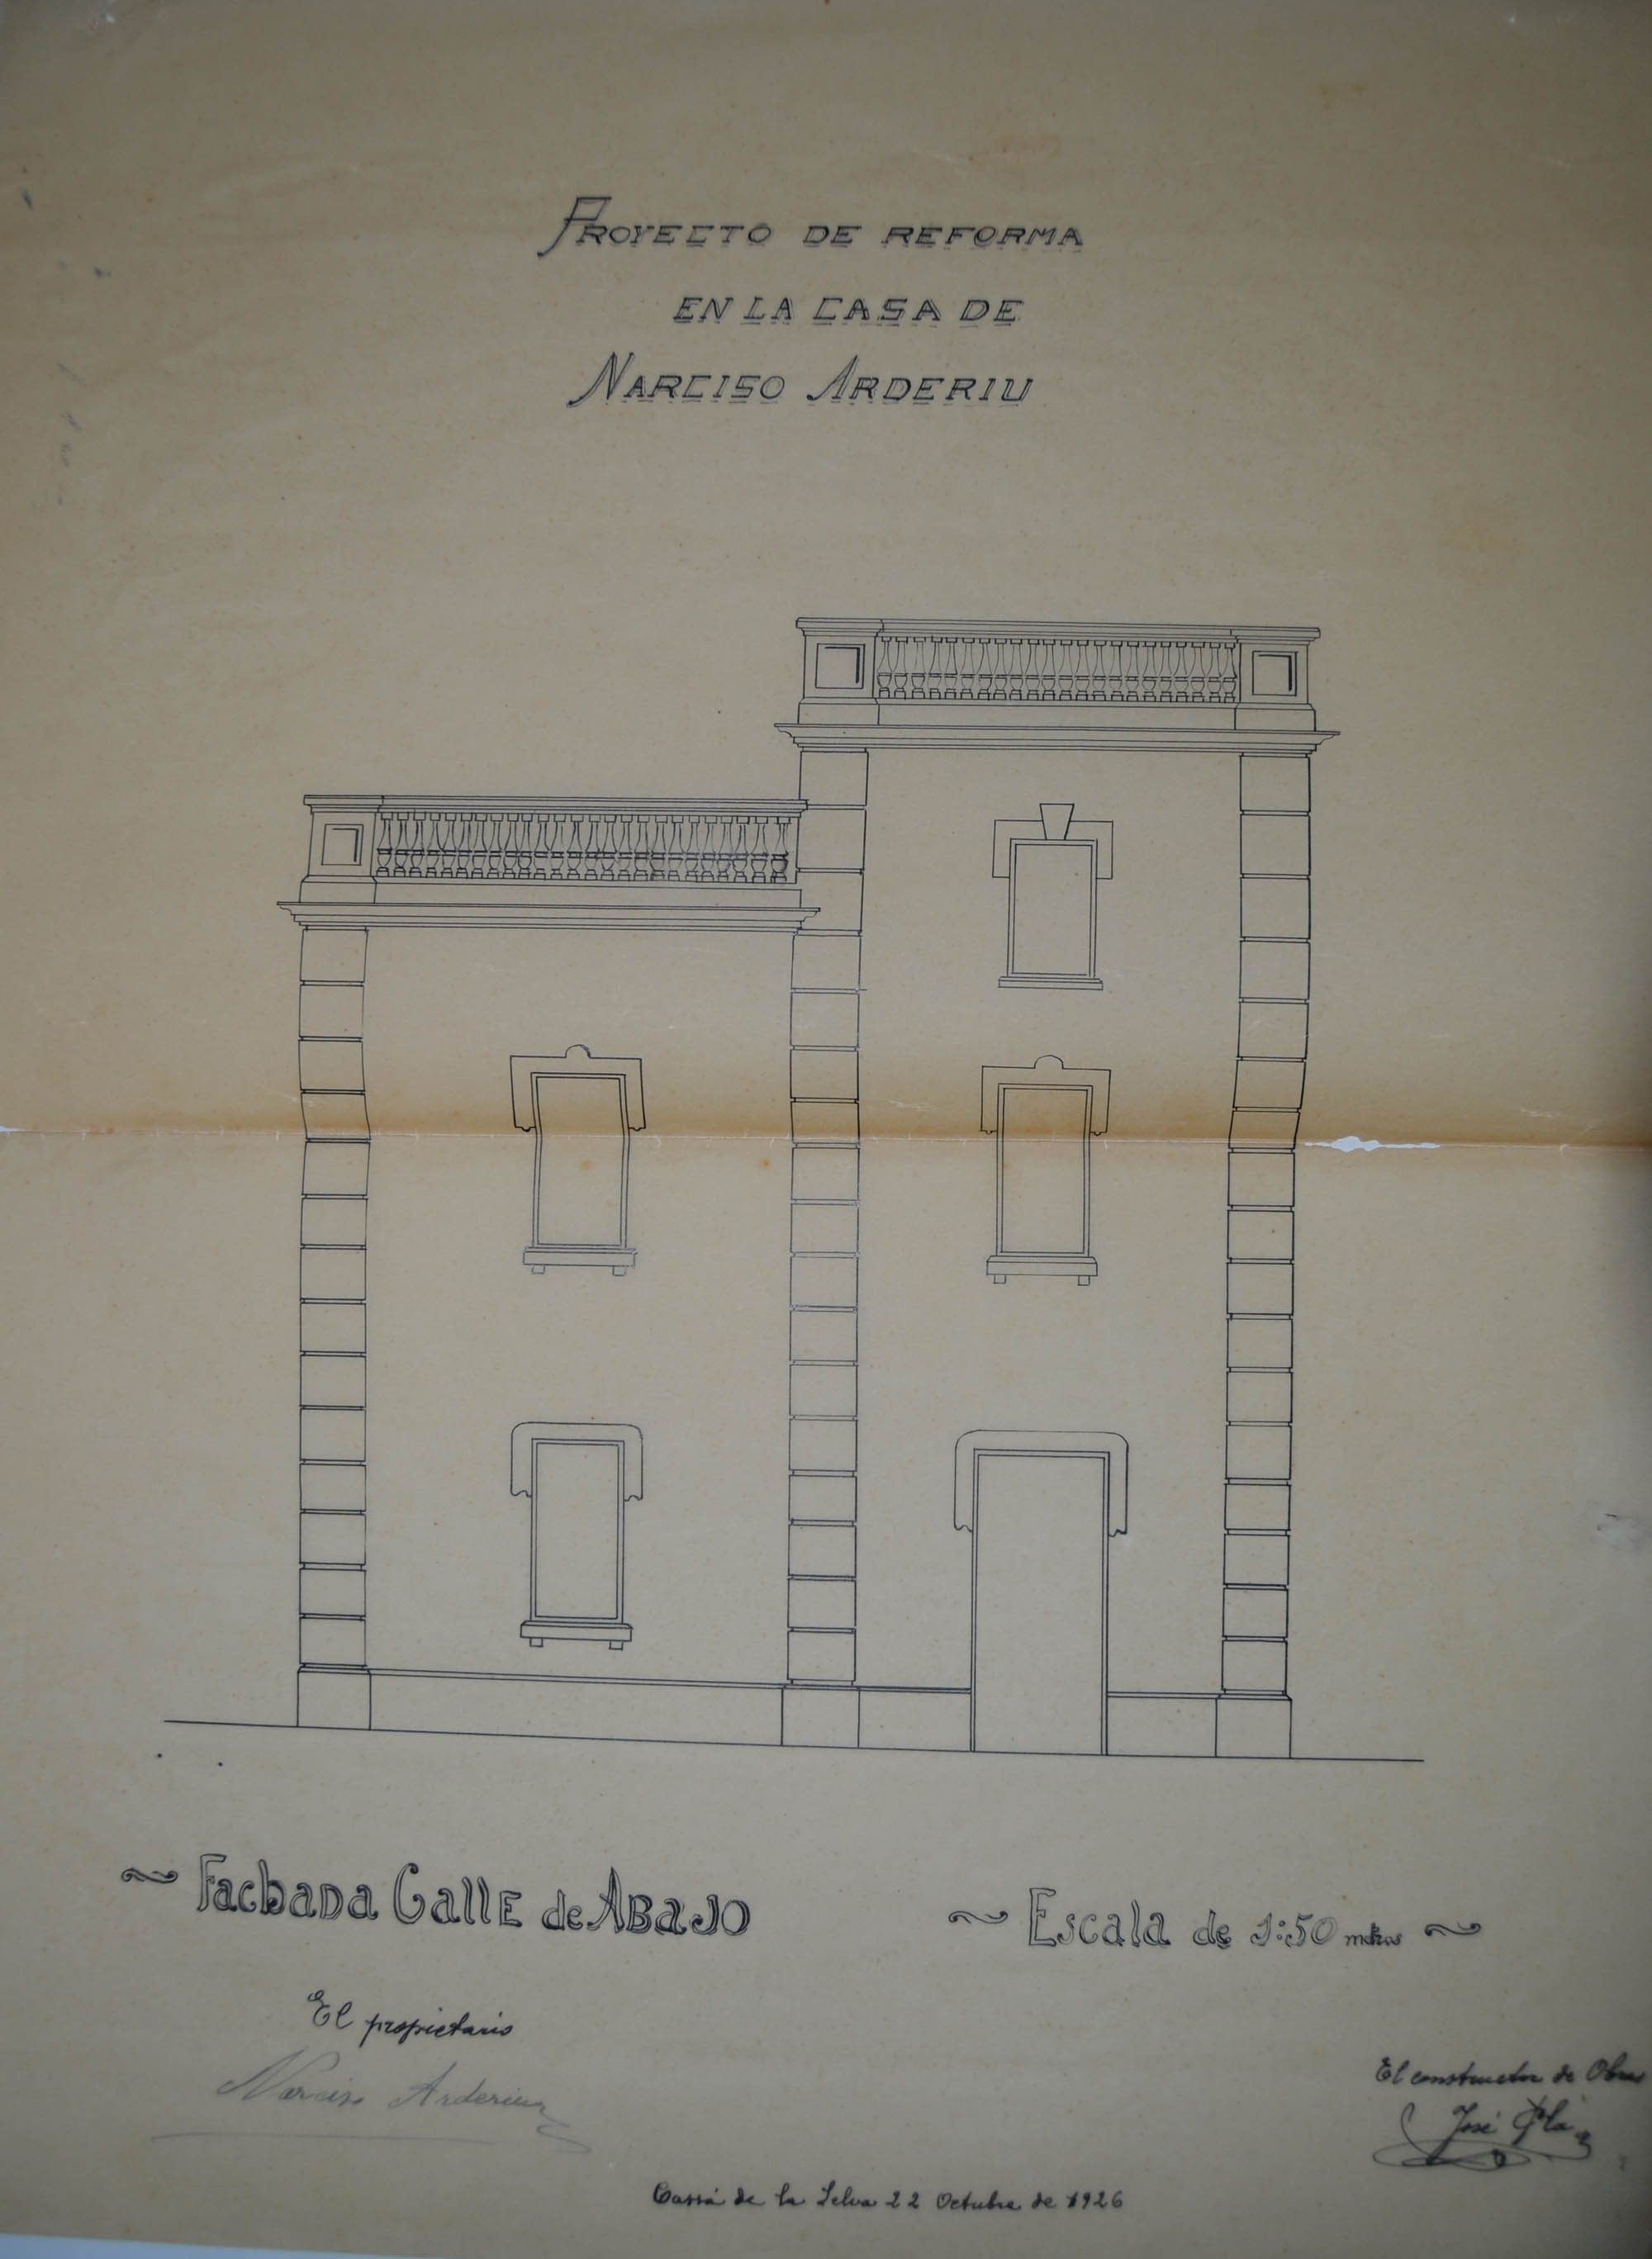 PROYECTO DE REFORMA
EN LA CASA DE
NARCISO ARDERIU
Fachada Calle de Abajo
Escala de 1:50 metros
El propietario
Narciso Arderiu
El constructor de Obras
José Plá
Cassá de la Selva 22 Octubre de 1926